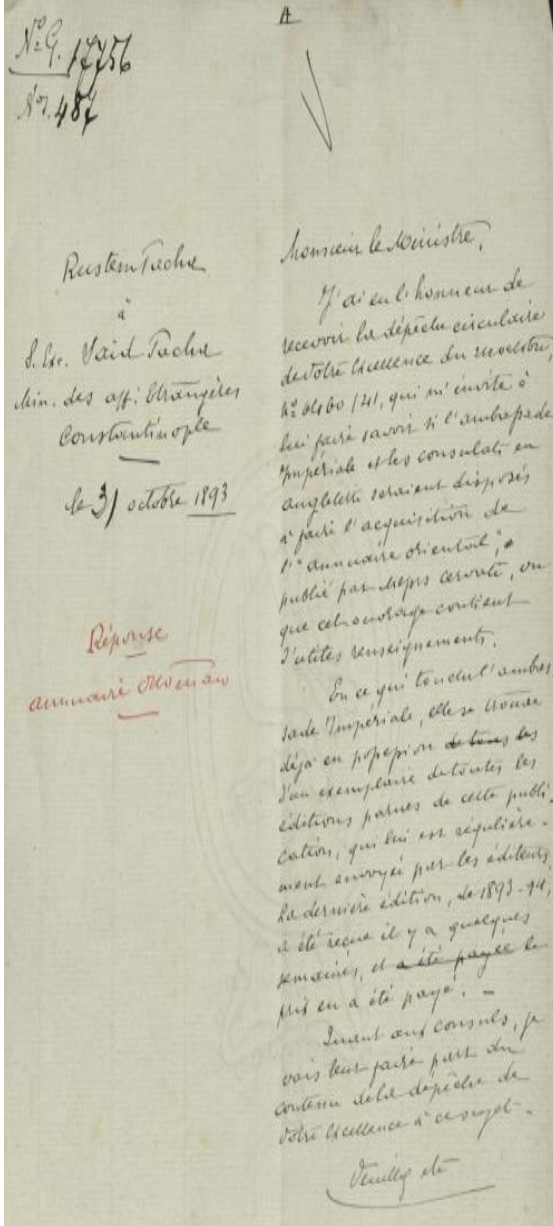 A
No G. 17756
No 487
Rustem Pacha
à
S. Exc. Saïd Pacha
Min. des aff. Etrangères
Constantinople
le 31 octobre 1893
Réponse
annuaire Ottoman
Monsieur le Ministre,
J'ai eu l'honneur de
recevoir la dépêche circulaire
de Votre Excellence du
No /41, qui m'invite à
lui faire savoir si l'ambassade
Impériale et les consulats en
angleterre seraient disposés
à faire l'acquisition de
l'"annuaire oriental",
publié par Messrs Cervati, vu
que cet ouvrage contient
d'utiles renseignements.
En ce qui touche l'ambas
sade Impériale, elle se trouve
déjà en possession de tous les
d'un exemplaire de toutes les
éditions parues de cette publi-
cation, qui lui est régulière-
ment envoyée par les éditeurs.
La dernière édition, de 1893-94,
a été reçue il y a quelques
semaines, et a été payée le
prix en a été payé. –
Quant aux consuls, je
vais leur faire part du
contenu de la dépêche de
Votre Excellence à ce sujet.
Veuillez etc